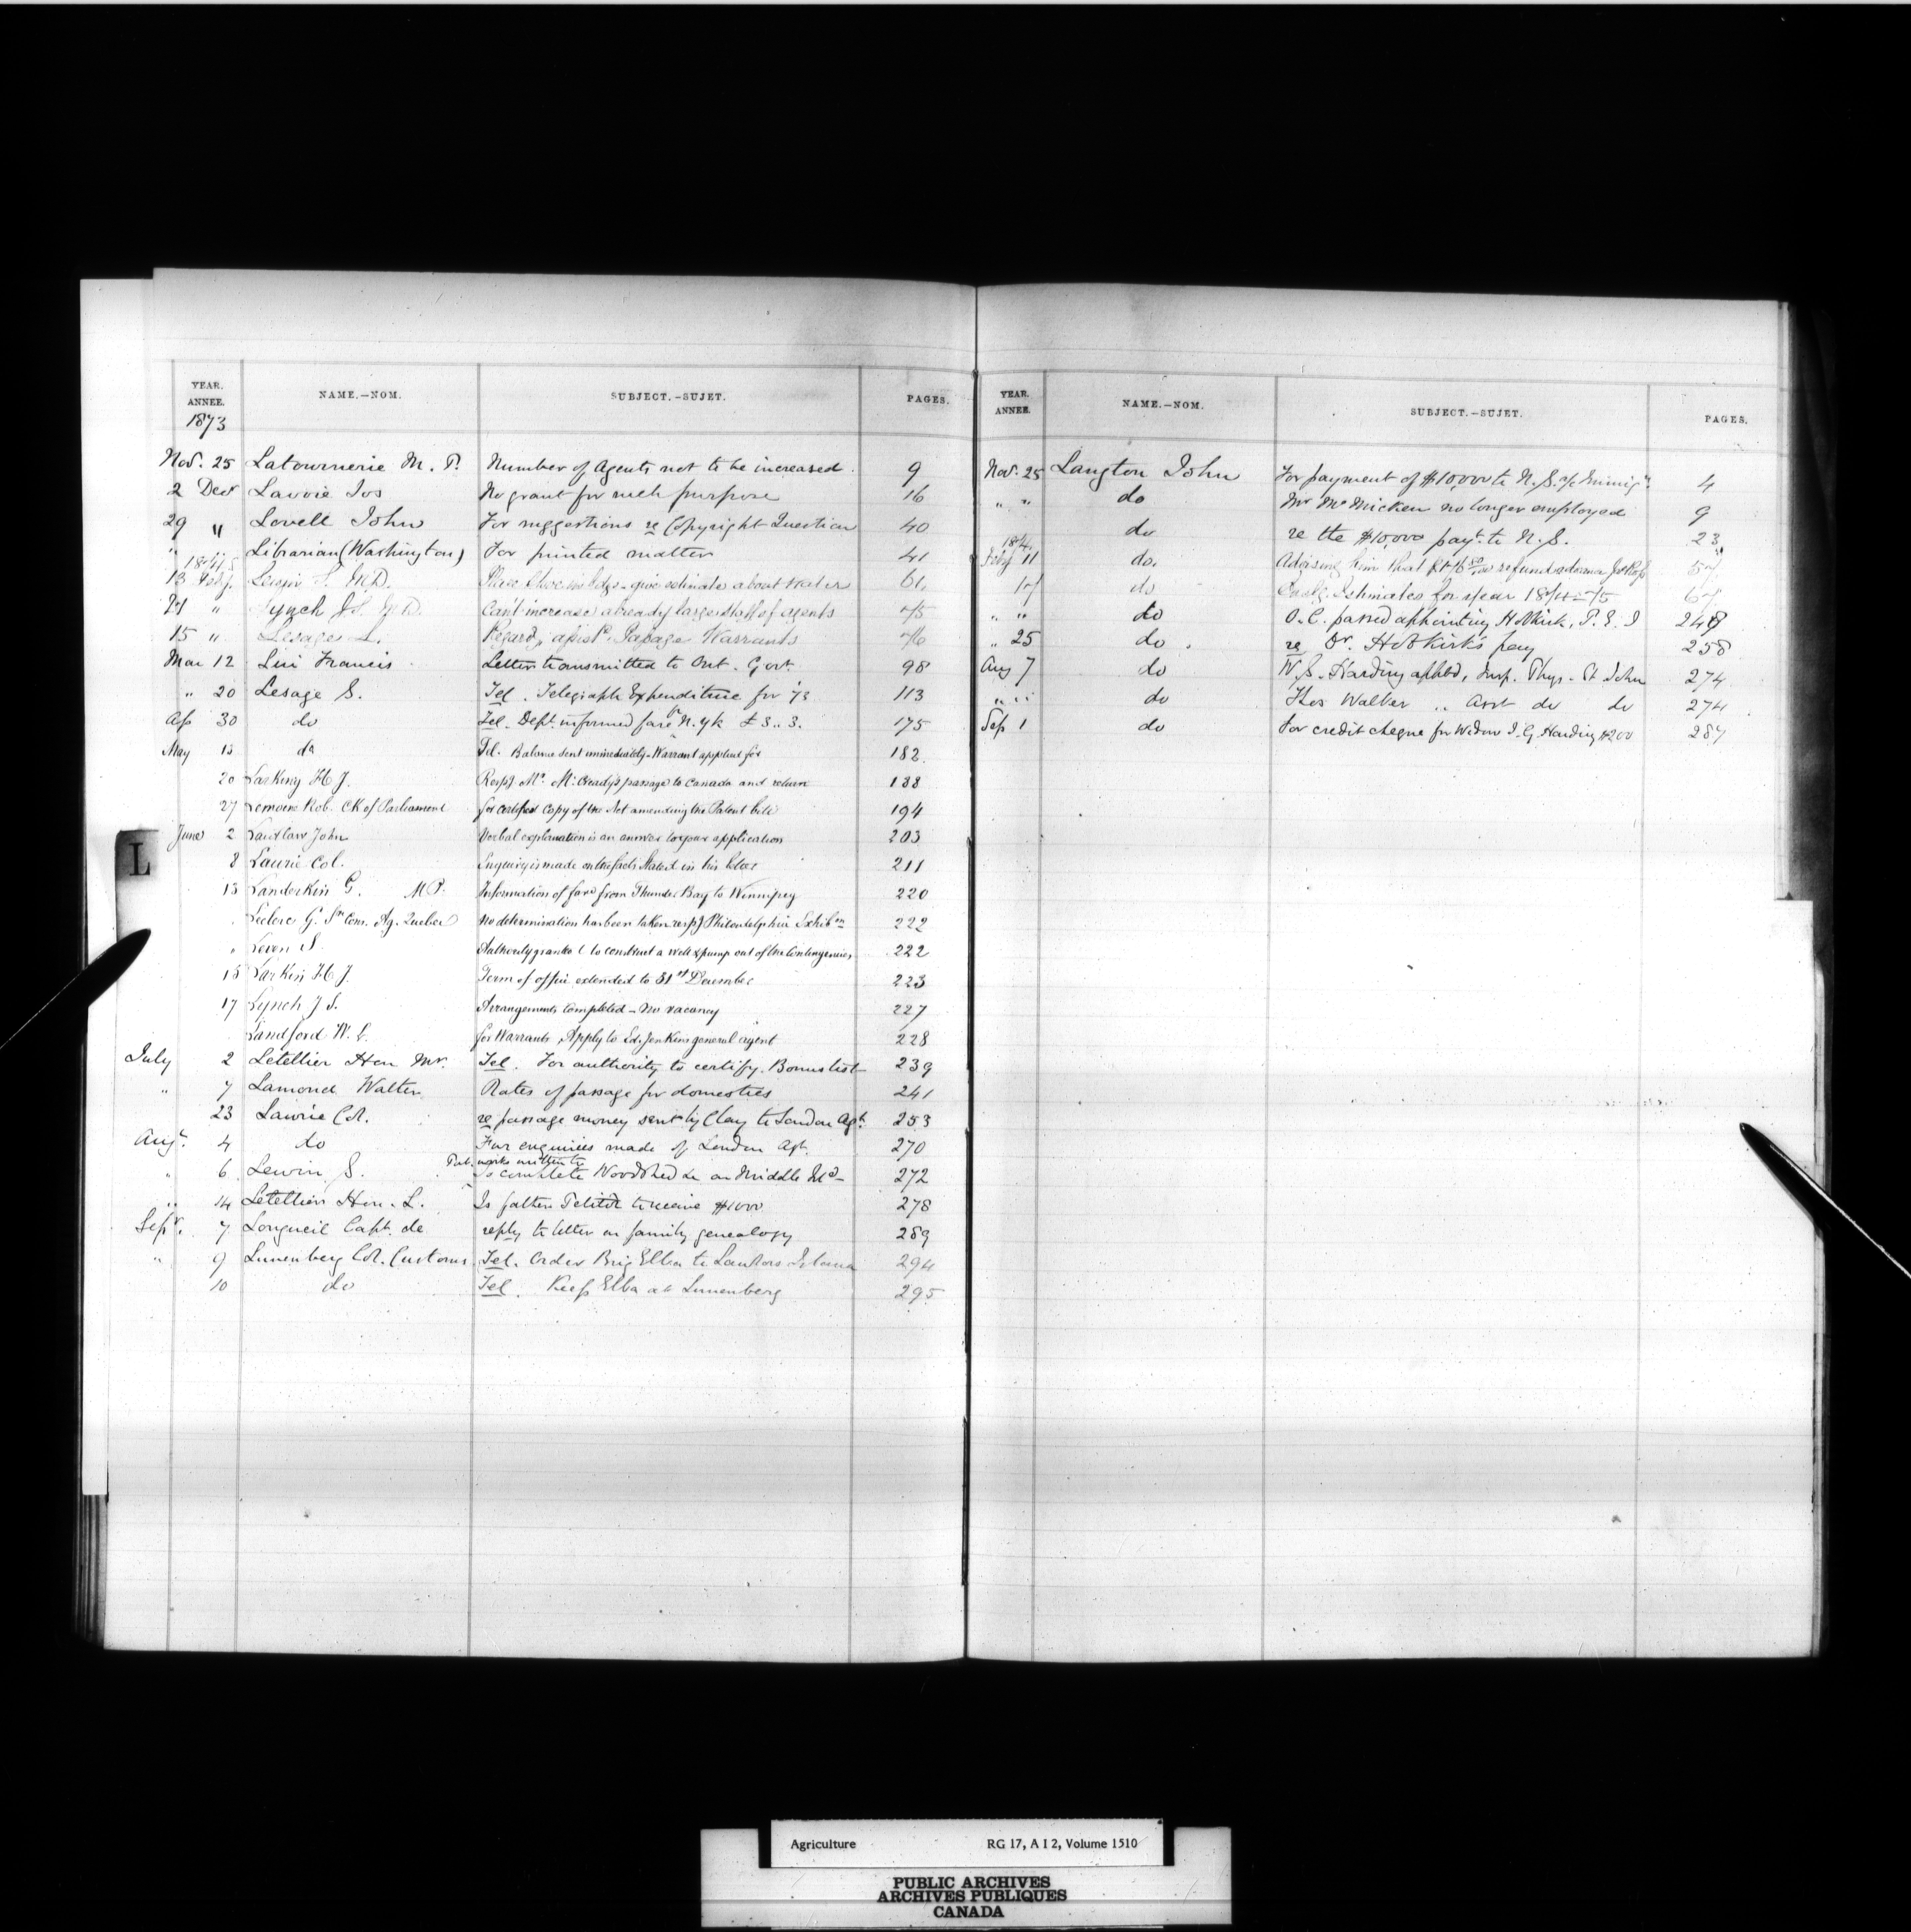 YEAR. ANNEE. NAME.—NOM. SUBJECT.—SUJET. PAGES.
1873
Nov. 25 Latournerie M. P. Number of Agents not to be increased. 9
2 Decr Lavoie Jos No grant for such purpose 16
29 " Lovell John For suggestions re Copyright Question 40
" Librarian (Washington) For printed matter 41
1874
13 Feby. M.D. give estimate about water 61
" Lynch J. S. M.D. Can't increase already large staff of agents 75
15 " Lesage L. Regardg assistd Passage Warrants 76
Mar 12 Francis Letter transmitted to Ont. Govt. 98
" 20 Lesage S. Tel. Telegraph Expenditure for 73 113
Ap 30 do Tel. Dept. informed fare N. Yk £3..3. 175
May 13 do Tel. Balance sent immediately - Warrant applied for 182
20 Larking H J. Respg Mr. McCready's passage to Canada and return 188
27 Lemoine Rob. Ck of Parliament for certified Copy of the Act amending the Patent bill 194
June 2 Laidlaw John Verbal explanation is an answer to your application 203
8 Laurie Col. Enquiry is made on the facts stated in his letter 211
13 Landerkin G. M P. Information of fare from Thunder Bay to Winnipeg 220
Leclerc G. Com. Ag. Quebec No determination has been taken respg Philadelphia Exhibon 222
" S. Authority granted to construct a well & pump out of the Contingencies 222
15 Larkin H J. Term of office extended to 31st December 223
17 Lynch J S. Arrangements Completed - No vacancy 227
Sandford W. for Warrants, Apply to Ed. Jenkins general agent 228
July 2 Letellier Hon Mr. Tel. For authority to certify. Bonus list 239
" 7 Lamond Walter Rates of passage for domestics 241
23 Laurie Col. re passage money sent by Clay to London Agt. 253
Augt. 4 do For enquiries made of London Agt. 270
Pub. works written to
" 6 Lewin S. to complete Woodshed &c on Middle Isd 272
" 14 Letellier Hon. L. Is father to receive $1000 278
Sepr. 7 Longueil Capt. de reply to letter on family genealogy 289
" 9 Lunenberg Col. Customs Tel. Order Brig Elba to Island 294
10 do Tel. Keep Elba at Lunenberg 295
L
YEAR. ANNEE. NAME.—NOM. SUBJECT.—SUJET. PAGES.
Nov. 25 Langton John For payment of $10,000 to N. S. a/c Immign. 4
" " do Mr McMicken no longer employed 9
do re the $10,000 payt. to N. S. 23
1874
Feby 11 do. Advising him that refund 57
17 do Estimates for year 1874-75 67
" " do O. C. passed appointing Hobkirk, P. E. I 248
" 25 do. re Dr. Hobkirk's pay 258
Aug 7 do W. S. Harding apptd, Insp. Phys. St John 274
" " do Thos Walker " Asst do do 274
Sep 1 do For credit cheque for Widow J. G. Harding $200 287
Agriculture RG 17, A I 2, Volume 1510
PUBLIC ARCHIVES
ARCHIVES PUBLIQUES
CANADA